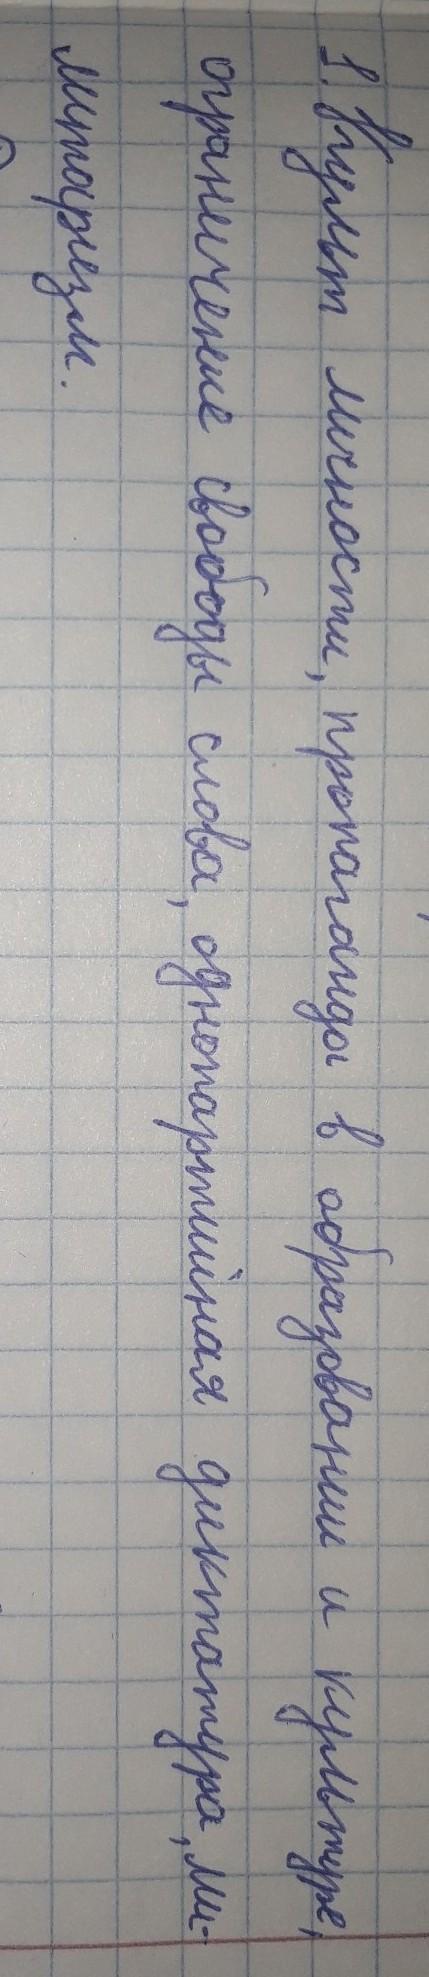 1. Культ личности, пропаганда в образовании и культуре,
ограничение свободы слова, однопартийная диктатура, ми-
литаризм.